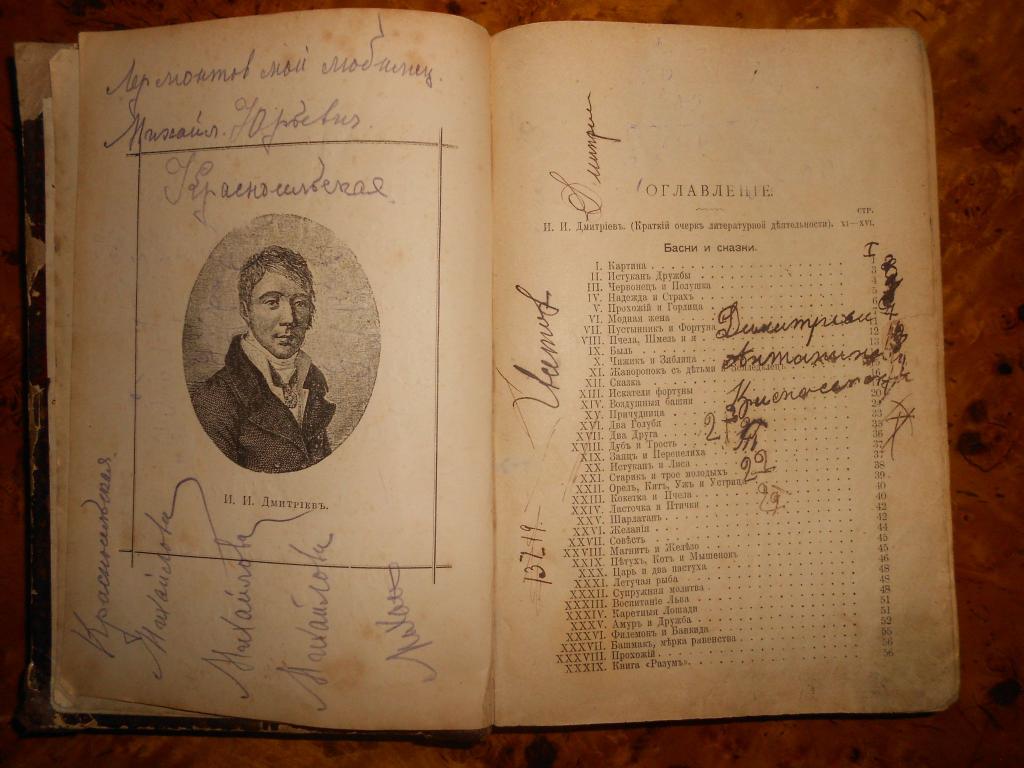 Лермонтов мой любимец.
Михайл. Юрьевич.
Красносельская
И. И. Дмитріевъ.
Красносельская
Михайлова
Михайлова
Михайлова
ОГЛАВЛЕНІЕ.
СТР.
И. И. Дмитріевъ. (Краткій очеркъ литературной дѣятельности). XI—XVI.
Басни и сказки.
I. Картина
II. Истуканъ Дружбы
III. Червонецъ и Полушка
IV. Надежда и Страхъ
V. Прохожій и Горлица
VI. Модная жена
VII. Пустынникъ и Фортуна
VIII. Пчела, Шмель и я
IX. Быль
X. Чижикъ и Зяблица
XI. Жаворонокъ съ дѣтьми и Земледѣлецъ
XII. Сказка
XIII. Искатели фортуны
XIV. Воздушныя башни
XV. Причудница 33
XVI. Два Голубя 35
XVII. Два Друга 36
XVIII. Дубъ и Трость 37
XIX. Заяцъ и Перепелиха 37
XX. Истуканъ и Лиса 38
XXI. Старикъ и трое молодыхъ 39
XXII. Орелъ, Китъ, Ужъ и Устрица 40
XXIII. Кокетка и Пчела 40
XXIV. Ласточка и Птички 42
XXV. Шарлатанъ 42
XXVI. Желанія 44
XXVII. Совѣсть 45
XXVIII. Магнитъ и Желѣзо 45
XXIX. Пѣтухъ, Котъ и Мышенокъ 46
XXX. Царь и два пастуха 48
XXXI. Летучая рыба 48
XXXII. Супружняя молитва 48
XXXIII. Воспитаніе Льва 51
XXXIV. Каретныя Лошади 51
XXXV. Амуръ и Дружба 52
XXXVI. Филемонъ и Бавкида 55
XXXVII. Башмакъ, мѣрка равенства 56
XXXVIII. Прохожій 56
XXXIX. Книга «Разумъ»